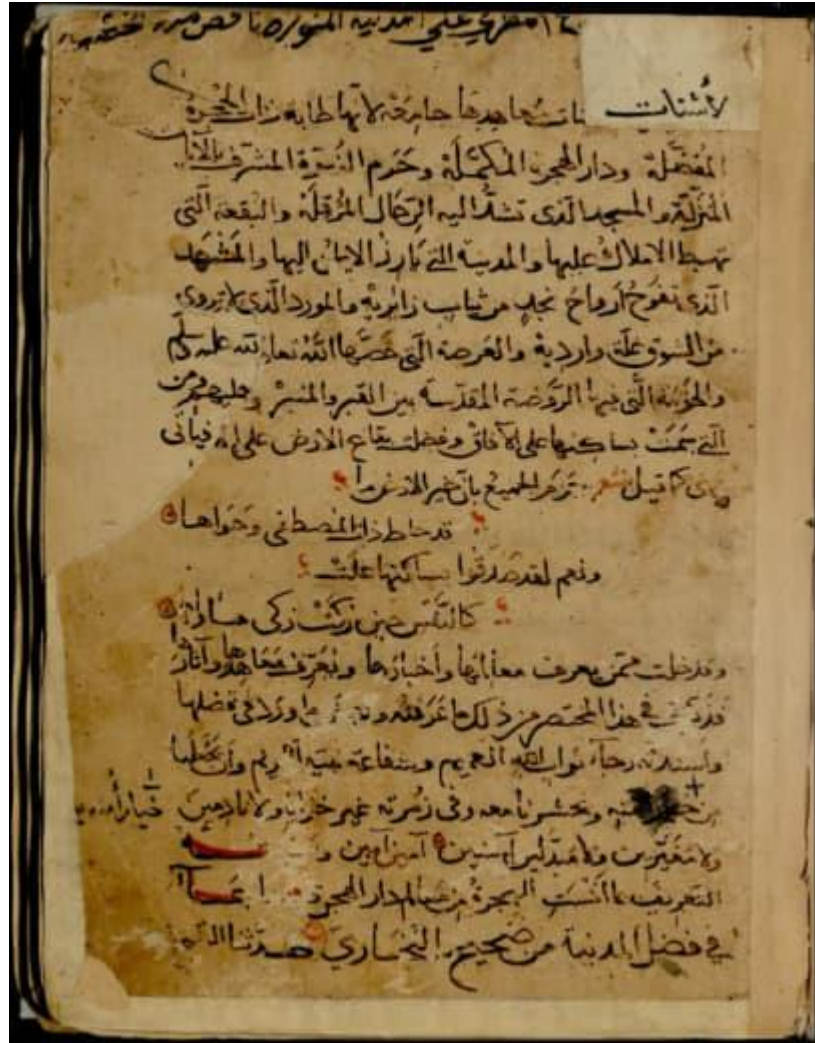 المدينة المنورة ناقص من
لأشتات معاهدها جامعة لانها طابة ذات الحجرة
المفضلة ودار الهجرة المكملة وحرم النبوة المشرف بالآيات
المنزلة والمسجد الذى تشد اليه الرحال المرقلة والبقعة التى
تهبط الاملاك عليها والمدينة التى يأرز الايمان اليها والمشهد
الذى تفوح أرواح نجد من ثياب زائريه والمورد الذى لا تروى
من الشوق غلة وارديه والعرصة التى خصها الله
والتى فيها الروضة المقدسة بين القبر والمنبر
التى سمت بساكنها على الآفاق وفضلت بقاع الارض على
كما قيل شعر جزم الجميع بان خير الارض ما
قد حاط ذات المصطفى وحواها
ونعم لقد صدقوا بساكنها علت
كالنفس حين زكت زكى مأواها
معالمها وأخبارها وتعرف معاهدها وآثارها
فى هذا المختصر من ذلك ما عرفته فى فضلها
رجاء ثواب الله العميم وشفاعة نبيه وان يجعلنا
من ويحشرنا معه وفى زمرته غير خزايا ولا نادمين
ولا مغيرين ولا مبدلين آمنين آمين آمين
التعريف بما أنست الهجرة من معالم دار الهجرة
فى فضل المدينة من صحيح البخاري حدثنا